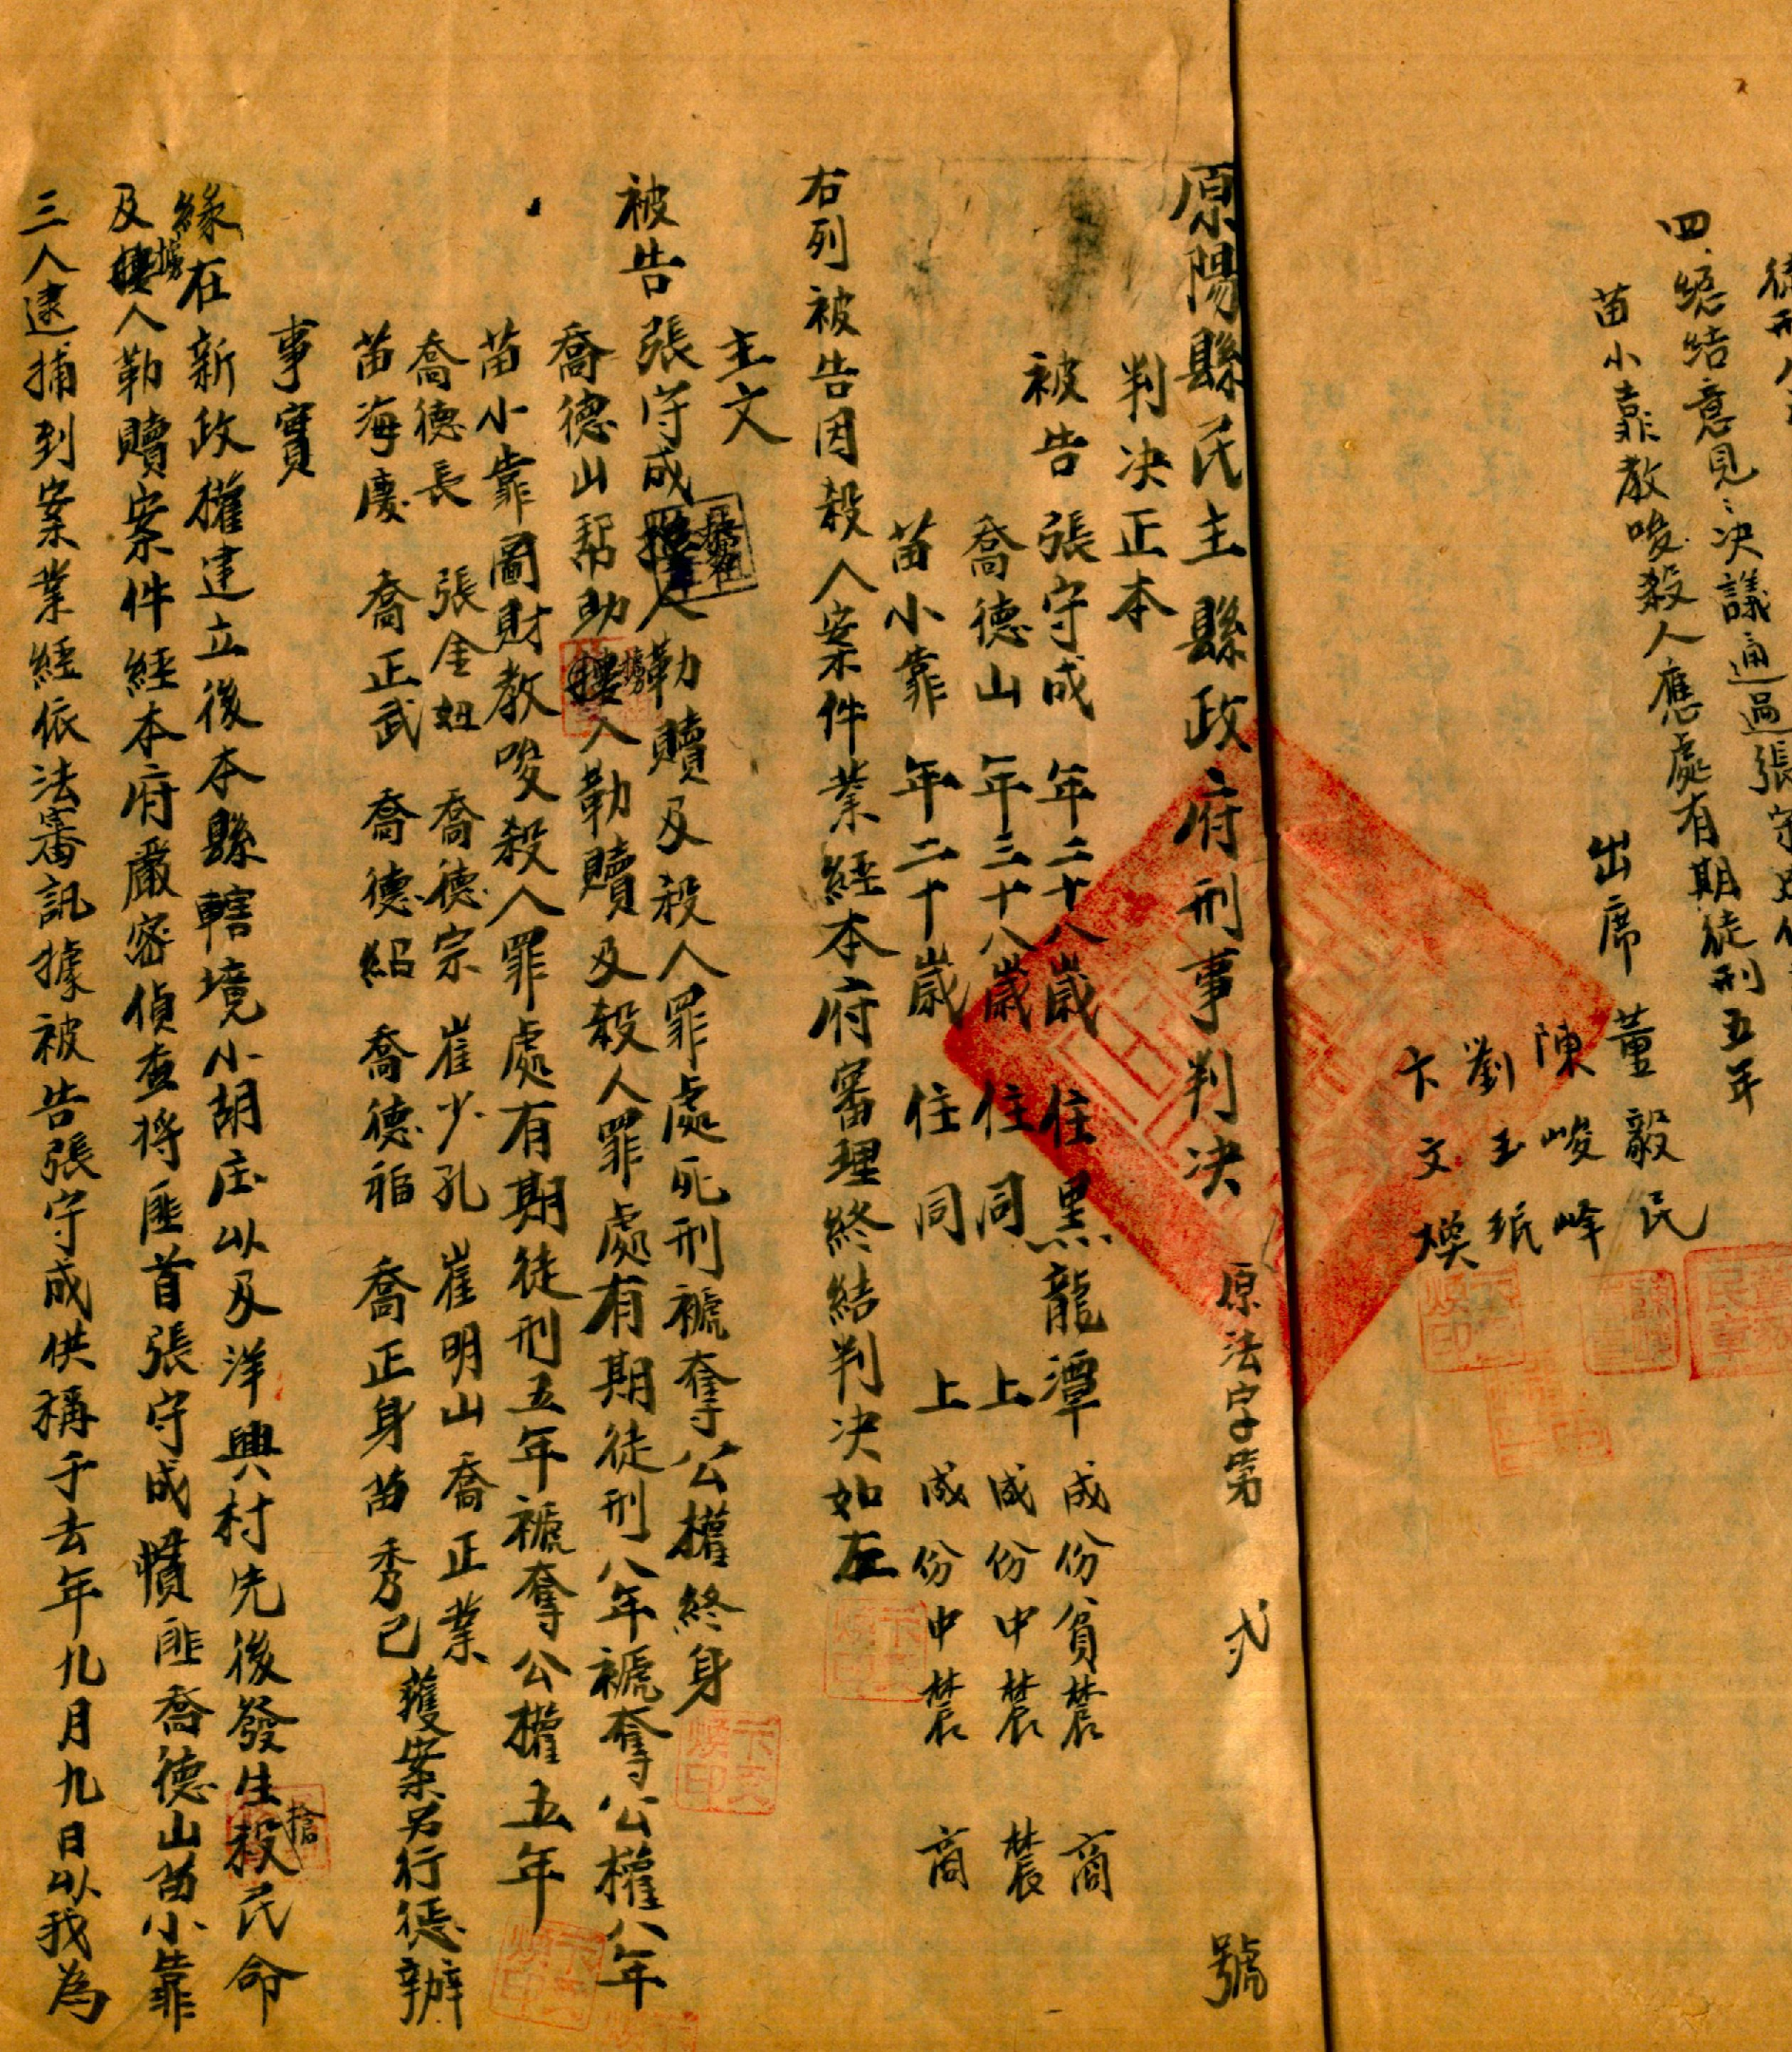 四、總結意見：決議通過張守成
苗小靠教唆殺人應處有期徒刑五年
出席 董毅民
陳峻峰
劉玉紙
卞文煥
原陽縣民主縣政府刑事判決 原法字第 弍 號
判決正本
被告 張守成 年二十八歲 住黑龍潭 成份貧農 商
喬德山 年三十八歲 住同 上 成份中農 農
苗小靠 年二十歲 住同 上 成份中農 商
右列被告因殺人案件業經本府審理終結判決如左
主文
被告張守成擄人勒贖及殺人罪處死刑褫奪公權終身
喬德山幫助擄人勒贖及殺人罪處有期徒刑八年褫奪公權八年
苗小靠圖財教唆殺人罪處有期徒刑五年褫奪公權五年
喬德長 張金妞 喬德宗 崔少孔 崔明山 喬正業
苗海慶 喬正武 喬德紹 喬德福 喬正身 苗秀己 獲案另行懲辦
事實
緣在新政權建立後本縣轄境小胡庄以及洋興村先後發生搶殺民命
及擄人勒贖案件經本府嚴密偵查將匪首張守成慣匪喬德山苗小靠
三人逮捕到案業經依法審訊據被告張守成供稱于去年九月九日以我為